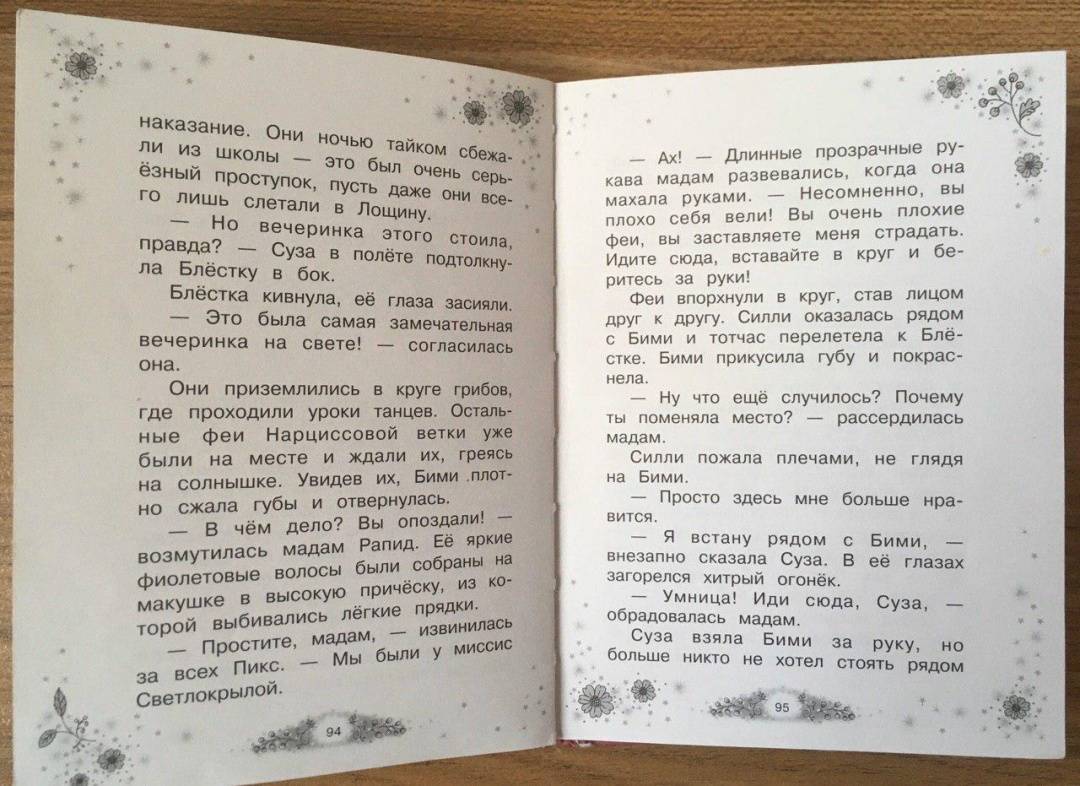 наказание. Они ночью тайком сбежа-
ли из школы — это был очень серь-
ёзный проступок, пусть даже они все-
го лишь слетали в Лощину.
— Но вечеринка этого стоила,
правда? — Суза в полёте подтолкну-
ла Блёстку в бок.
Блёстка кивнула, её глаза засияли.
— Это была самая замечательная
вечеринка на свете! — согласилась
она.
Они приземлились в круге грибов,
где проходили уроки танцев. Осталь-
ные феи Нарциссовой ветки уже
были на месте и ждали их, греясь
на солнышке. Увидев их, Бими плот-
но сжала губы и отвернулась.
— В чём дело? Вы опоздали! —
возмутилась мадам Рапид. Её яркие
фиолетовые волосы были собраны на
макушке в высокую причёску, из ко-
торой выбивались лёгкие прядки.
— Простите, мадам, — извинилась
за всех Пикс. — Мы были у миссис
Светлокрылой.
94
— Ах! — Длинные прозрачные ру-
кава мадам развевались, когда она
махала руками. — Несомненно, вы
плохо себя вели! Вы очень плохие
феи, вы заставляете меня страдать.
Идите сюда, вставайте в круг и бе-
ритесь за руки!
Феи впорхнули в круг, став лицом
друг к другу. Силли оказалась рядом
с Бими и тотчас перелетела к Блё-
стке. Бими прикусила губу и покрас-
нела.
— Ну что ещё случилось? Почему
ты поменяла место? — рассердилась
мадам.
Силли пожала плечами, не глядя
на Бими.
— Просто здесь мне больше нра-
вится.
— Я встану рядом с Бими, —
внезапно сказала Суза. В её глазах
загорелся хитрый огонёк.
— Умница! Иди сюда, Суза, —
обрадовалась мадам.
Суза взяла Бими за руку, но
больше никто не хотел стоять рядом
95